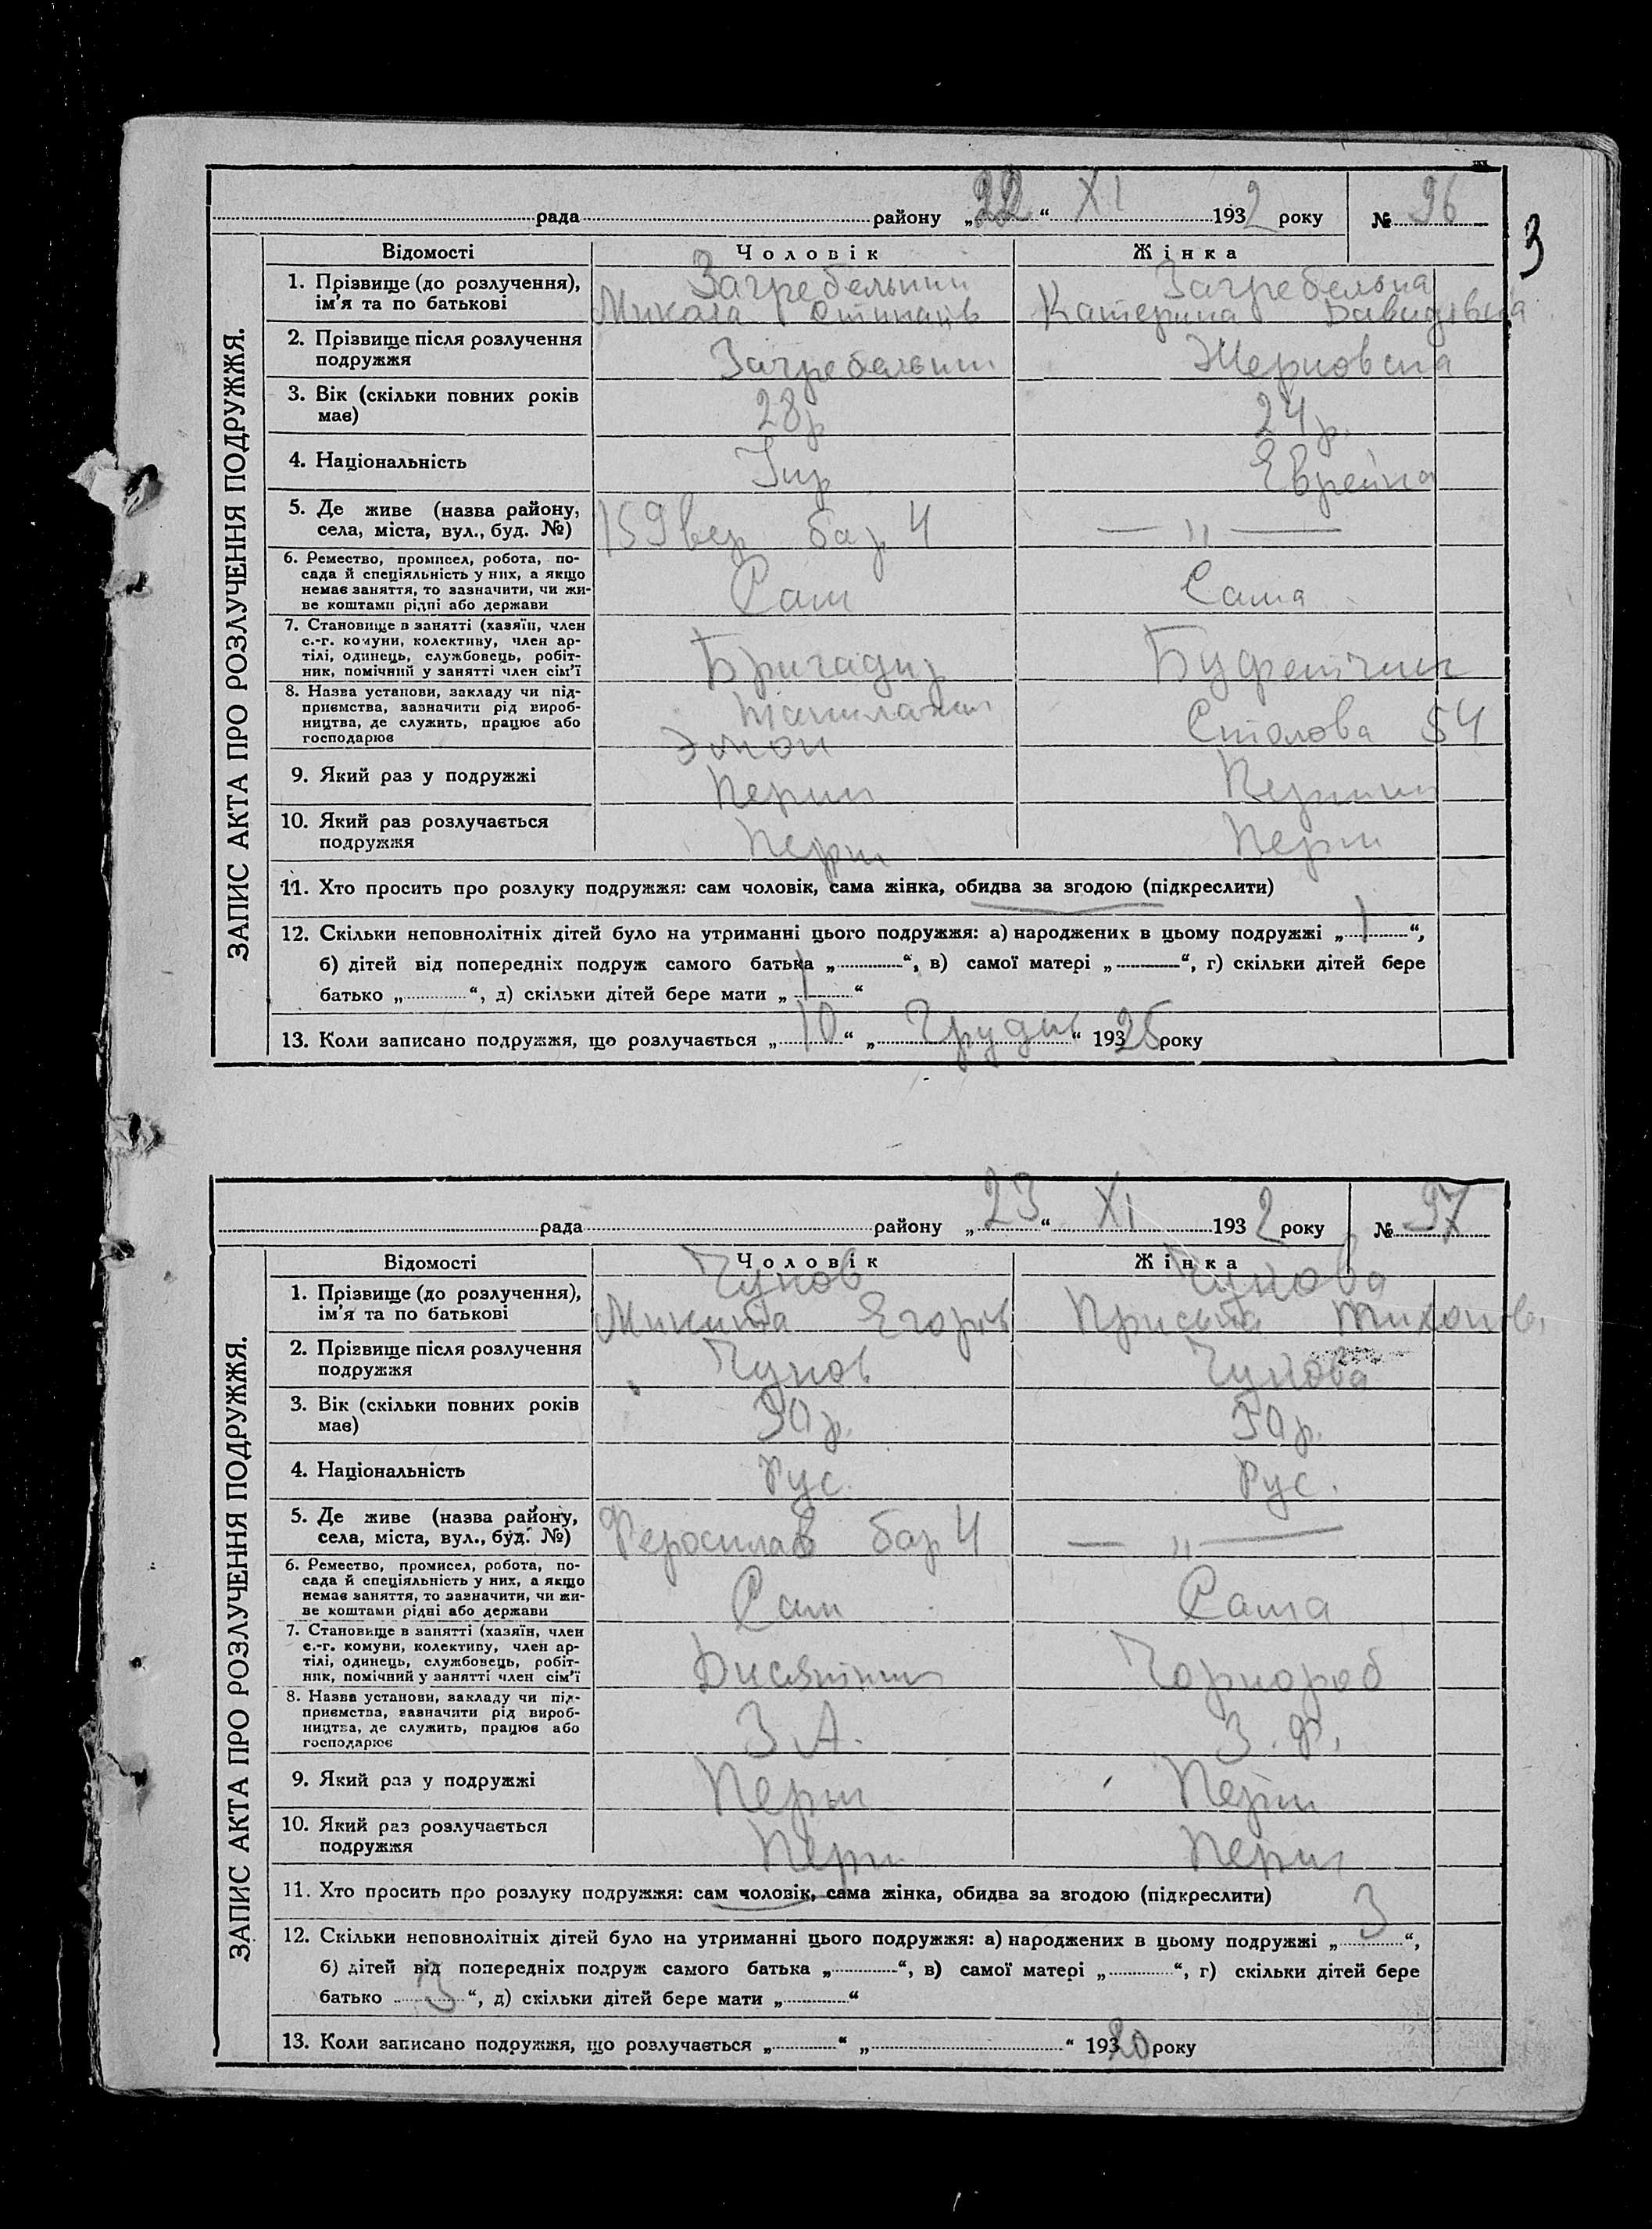 3
ЗАПИС АКТА ПРО РОЗЛУЧЕННЯ ПОДРУЖЖЯ.
рада району „22“ XI 1932 року № 96
Відомості Чоловік Жінка
1. Прізвище (до розлучення), ім'я та по батькові
Загребельний Загребельна
Микола Катерина Давидівна
2. Прізвище після розлучення подружжя
Загребельний Жерновська
3. Вік (скільки повних років має)
28р 24р.
4. Національність
Укр Еврейка
5. Де живе (назва району, села, міста, вул., буд. №)
159 вер бар 4 — „ —
6. Ремество, промисел, робота, по-
сада й спеціяльність у них, а якщо
немає заняття, то зазначити, чи жи-
ве коштами рідні або держави
Сам Сама
7. Становище в занятті (хазяїн, член
с.-г. комуни, колективу, член ар-
тілі, одинець, службовець, робіт-
ник, помічний у занятті член сім'ї
Бригадир Буфетчик
8. Назва установи, закладу чи під-
приємства, зазначити рід вироб-
ництва, де служить, працює або
господарює
Столова 54
9. Який раз у подружжі
Перший Перший
10. Який раз розлучається
подружжя
Перш Перш
11. Хто просить про розлуку подружжя: сам чоловік, сама жінка, обидва за згодою (підкреслити)
12. Скільки неповнолітніх дітей було на утриманні цього подружжя: а) народжених в цьому подружжі „1“,
б) дітей від попередніх подруж самого батька „ “, в) самої матері „ “, г) скільки дітей бере
батько „ “, д) скільки дітей бере мати „1“
13. Коли записано подружжя, що розлучається „10“ „Грудня“ 19325 року
ЗАПИС АКТА ПРО РОЗЛУЧЕННЯ ПОДРУЖЖЯ.
рада району „23“ XI 1932 року № 97
Відомості Чоловік Жінка
1. Прізвище (до розлучення),
ім'я та по батькові
Чунов Чунова
Микита Егорів Присьта Тихонів.
2. Прізвище після розлучення
подружжя
Чунов Чунова
3. Вік (скільки повних років
має)
30р. 30р.
4. Національність
Рус. Рус.
5. Де живе (назва району,
села, міста, вул., буд. №)
Феросплав бар 4 — „ —
6. Ремество, промисел, робота, по-
сада й спеціяльність у них, а якщо
немає заняття, то зазначити, чи жи-
ве коштами рідні або держави
Сам Сама
7. Становище в занятті (хазяїн, член
с.-г. комуни, колективу, член ар-
тілі, одинець, службовець, робіт-
ник, помічний у занятті член сім'ї
Чорнороб
8. Назва установи, закладу чи під-
приємства, зазначити рід вироб-
ництва, де служить, працює або
господарює
З.А. З.Ф.
9. Який раз у подружжі
Перш Перш
10. Який раз розлучається
подружжя
Перш Перш
11. Хто просить про розлуку подружжя: сам чоловік, сама жінка, обидва за згодою (підкреслити)
12. Скільки неповнолітніх дітей було на утриманні цього подружжя: а) народжених в цьому подружжі „3“,
б) дітей від попередніх подруж самого батька „ “, в) самої матері „ “, г) скільки дітей бере
батько „3“, д) скільки дітей бере мати „ “
13. Коли записано подружжя, що розлучається „ “ „ “ 19320 року